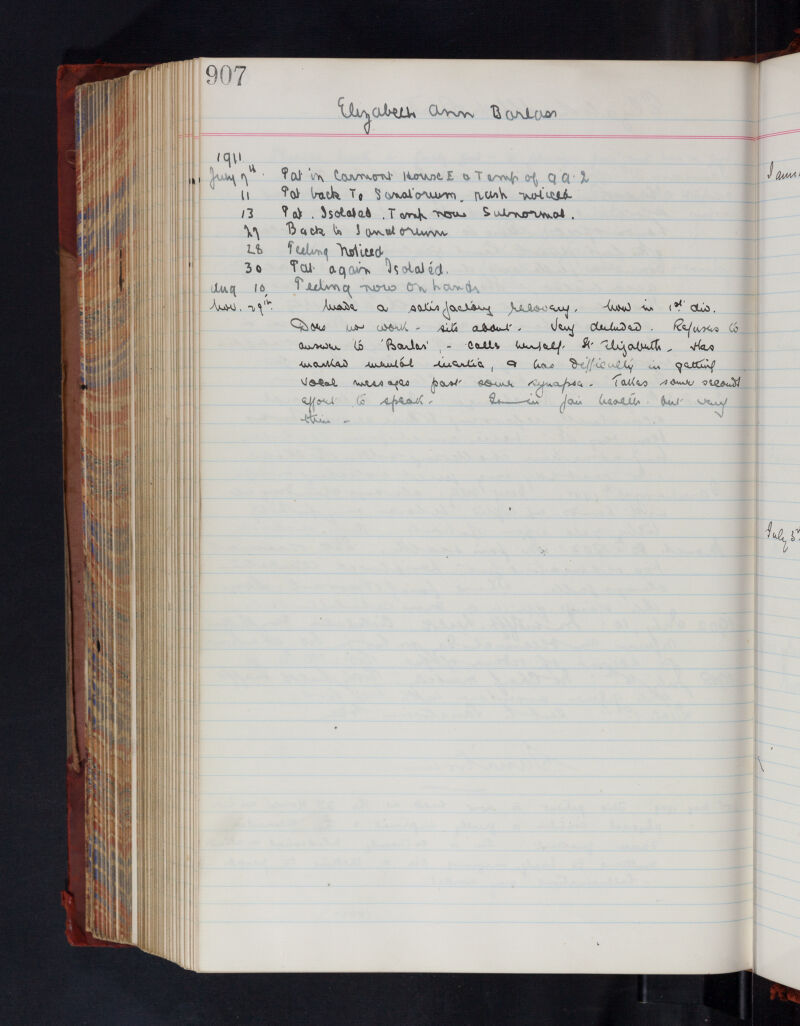 907
Elizabeth Ann Barlas
1911
July 7th. Pat in Carmont House E a Temp of 99.2
11 Pat back To Sanatorium, rash noticed
13 Pat. Isolated. Temp now Subnormal.
27 Back to Sanatorium
28 Peeling Noticed
30 Pat again Isolated.
Aug 10. Peeling now on hands
Nov. 29th. Made a satisfactory recovery. Now in 1st div.
Does no work - sits about. Very deluded. Refuses to
answer to 'Barlas', - calls herself St Elizabeth. Has
marked mental inertia, & has difficulty in getting
vocal messages past some synapse. Takes some seconds
effort to speak. in fair health but very
thin -
July 3